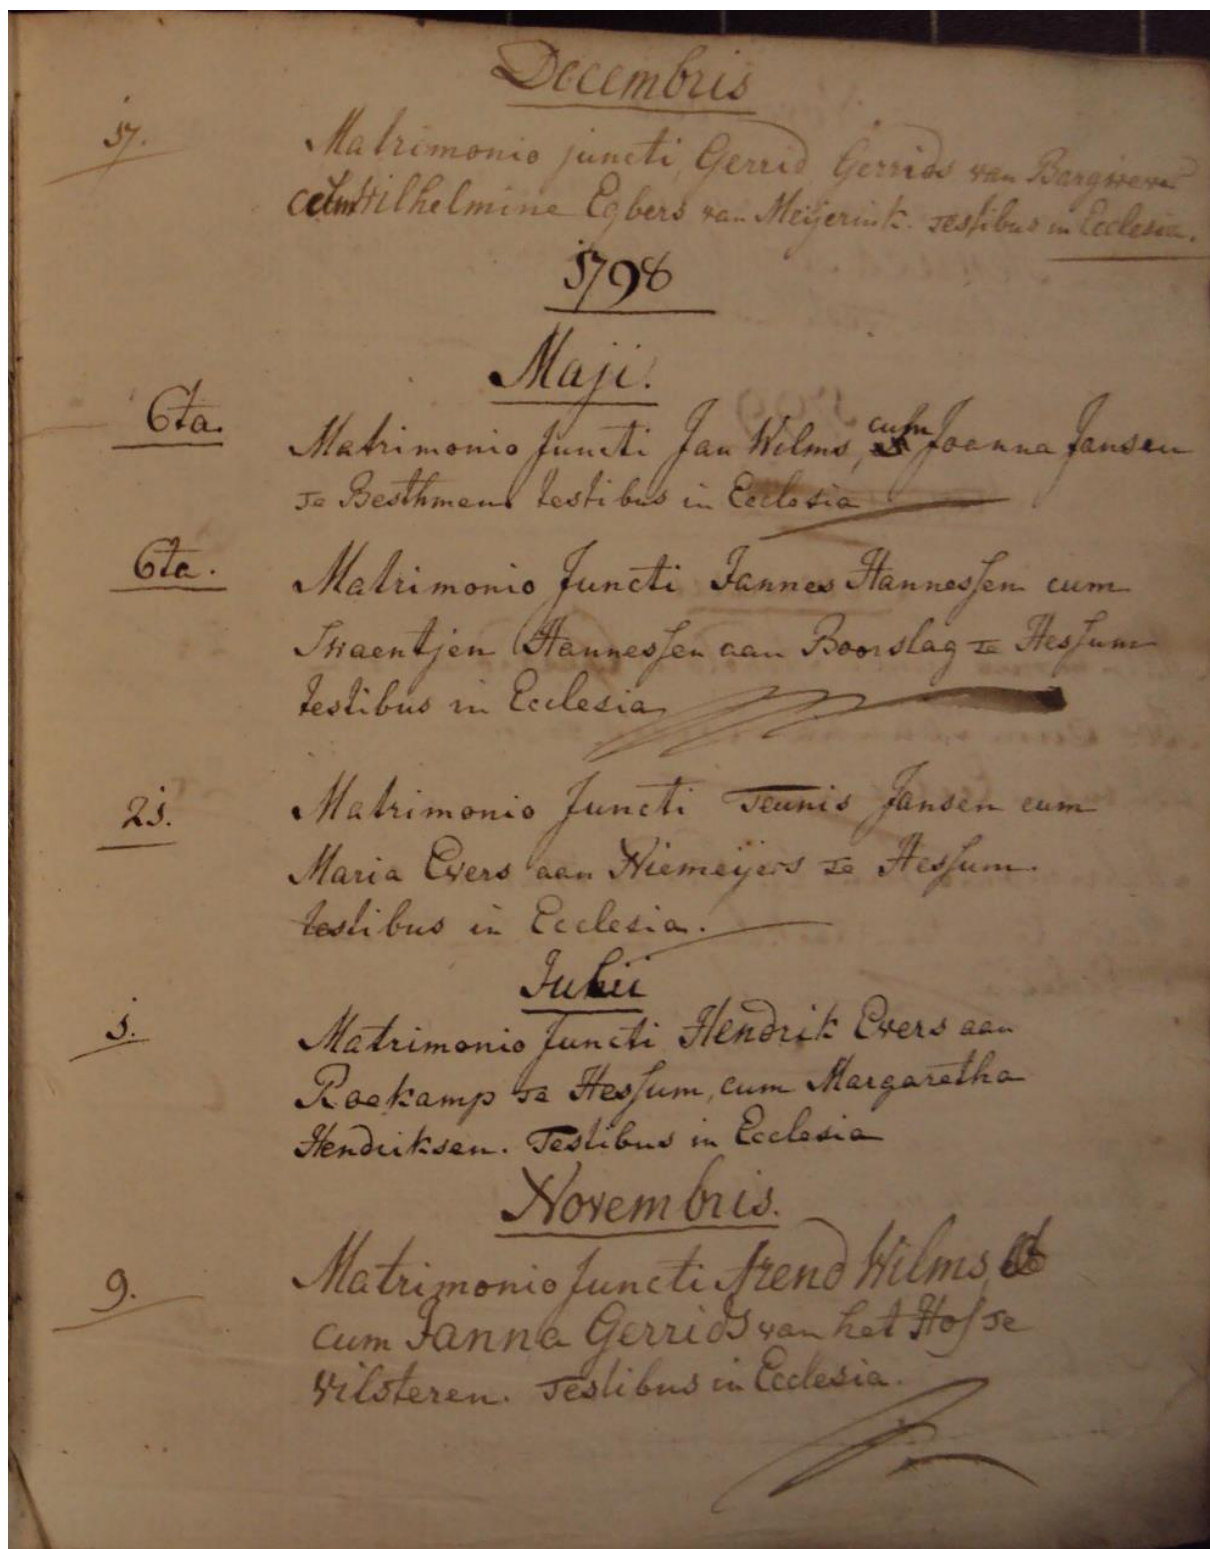 Decembris
17. Matrimonio juncti, Gerrid Gerrids van
cum Wilhelmine Egbers van Meijerink. Testibus in Ecclesia.
1798
Maji.
6ta. Matrimonio Juncti Jan Wilms, cum Joanna Jansen
Te Besthmen. testibus in Ecclesia
6ta. Matrimonio Juncti Jannes Hannessen cum
Swaentjen Hannessen aan Boorslag Te Hessum
testibus in Ecclesia
21. Matrimonio Juncti Teunis Jansen cum
Maria Evers aan Niemeijers Te Hessum.
testibus in Ecclesia.
Julii
1. Matrimonio Juncti Hendrik Evers aan
Roekamp Te Hessum, cum Margaretha
Hendriksen. Testibus in Ecclesia
Novembris.
9. Matrimonio Juncti Arend Wilms
cum Janna Gerrids van het Hof Te
Vilsteren. Testibus in Ecclesia.